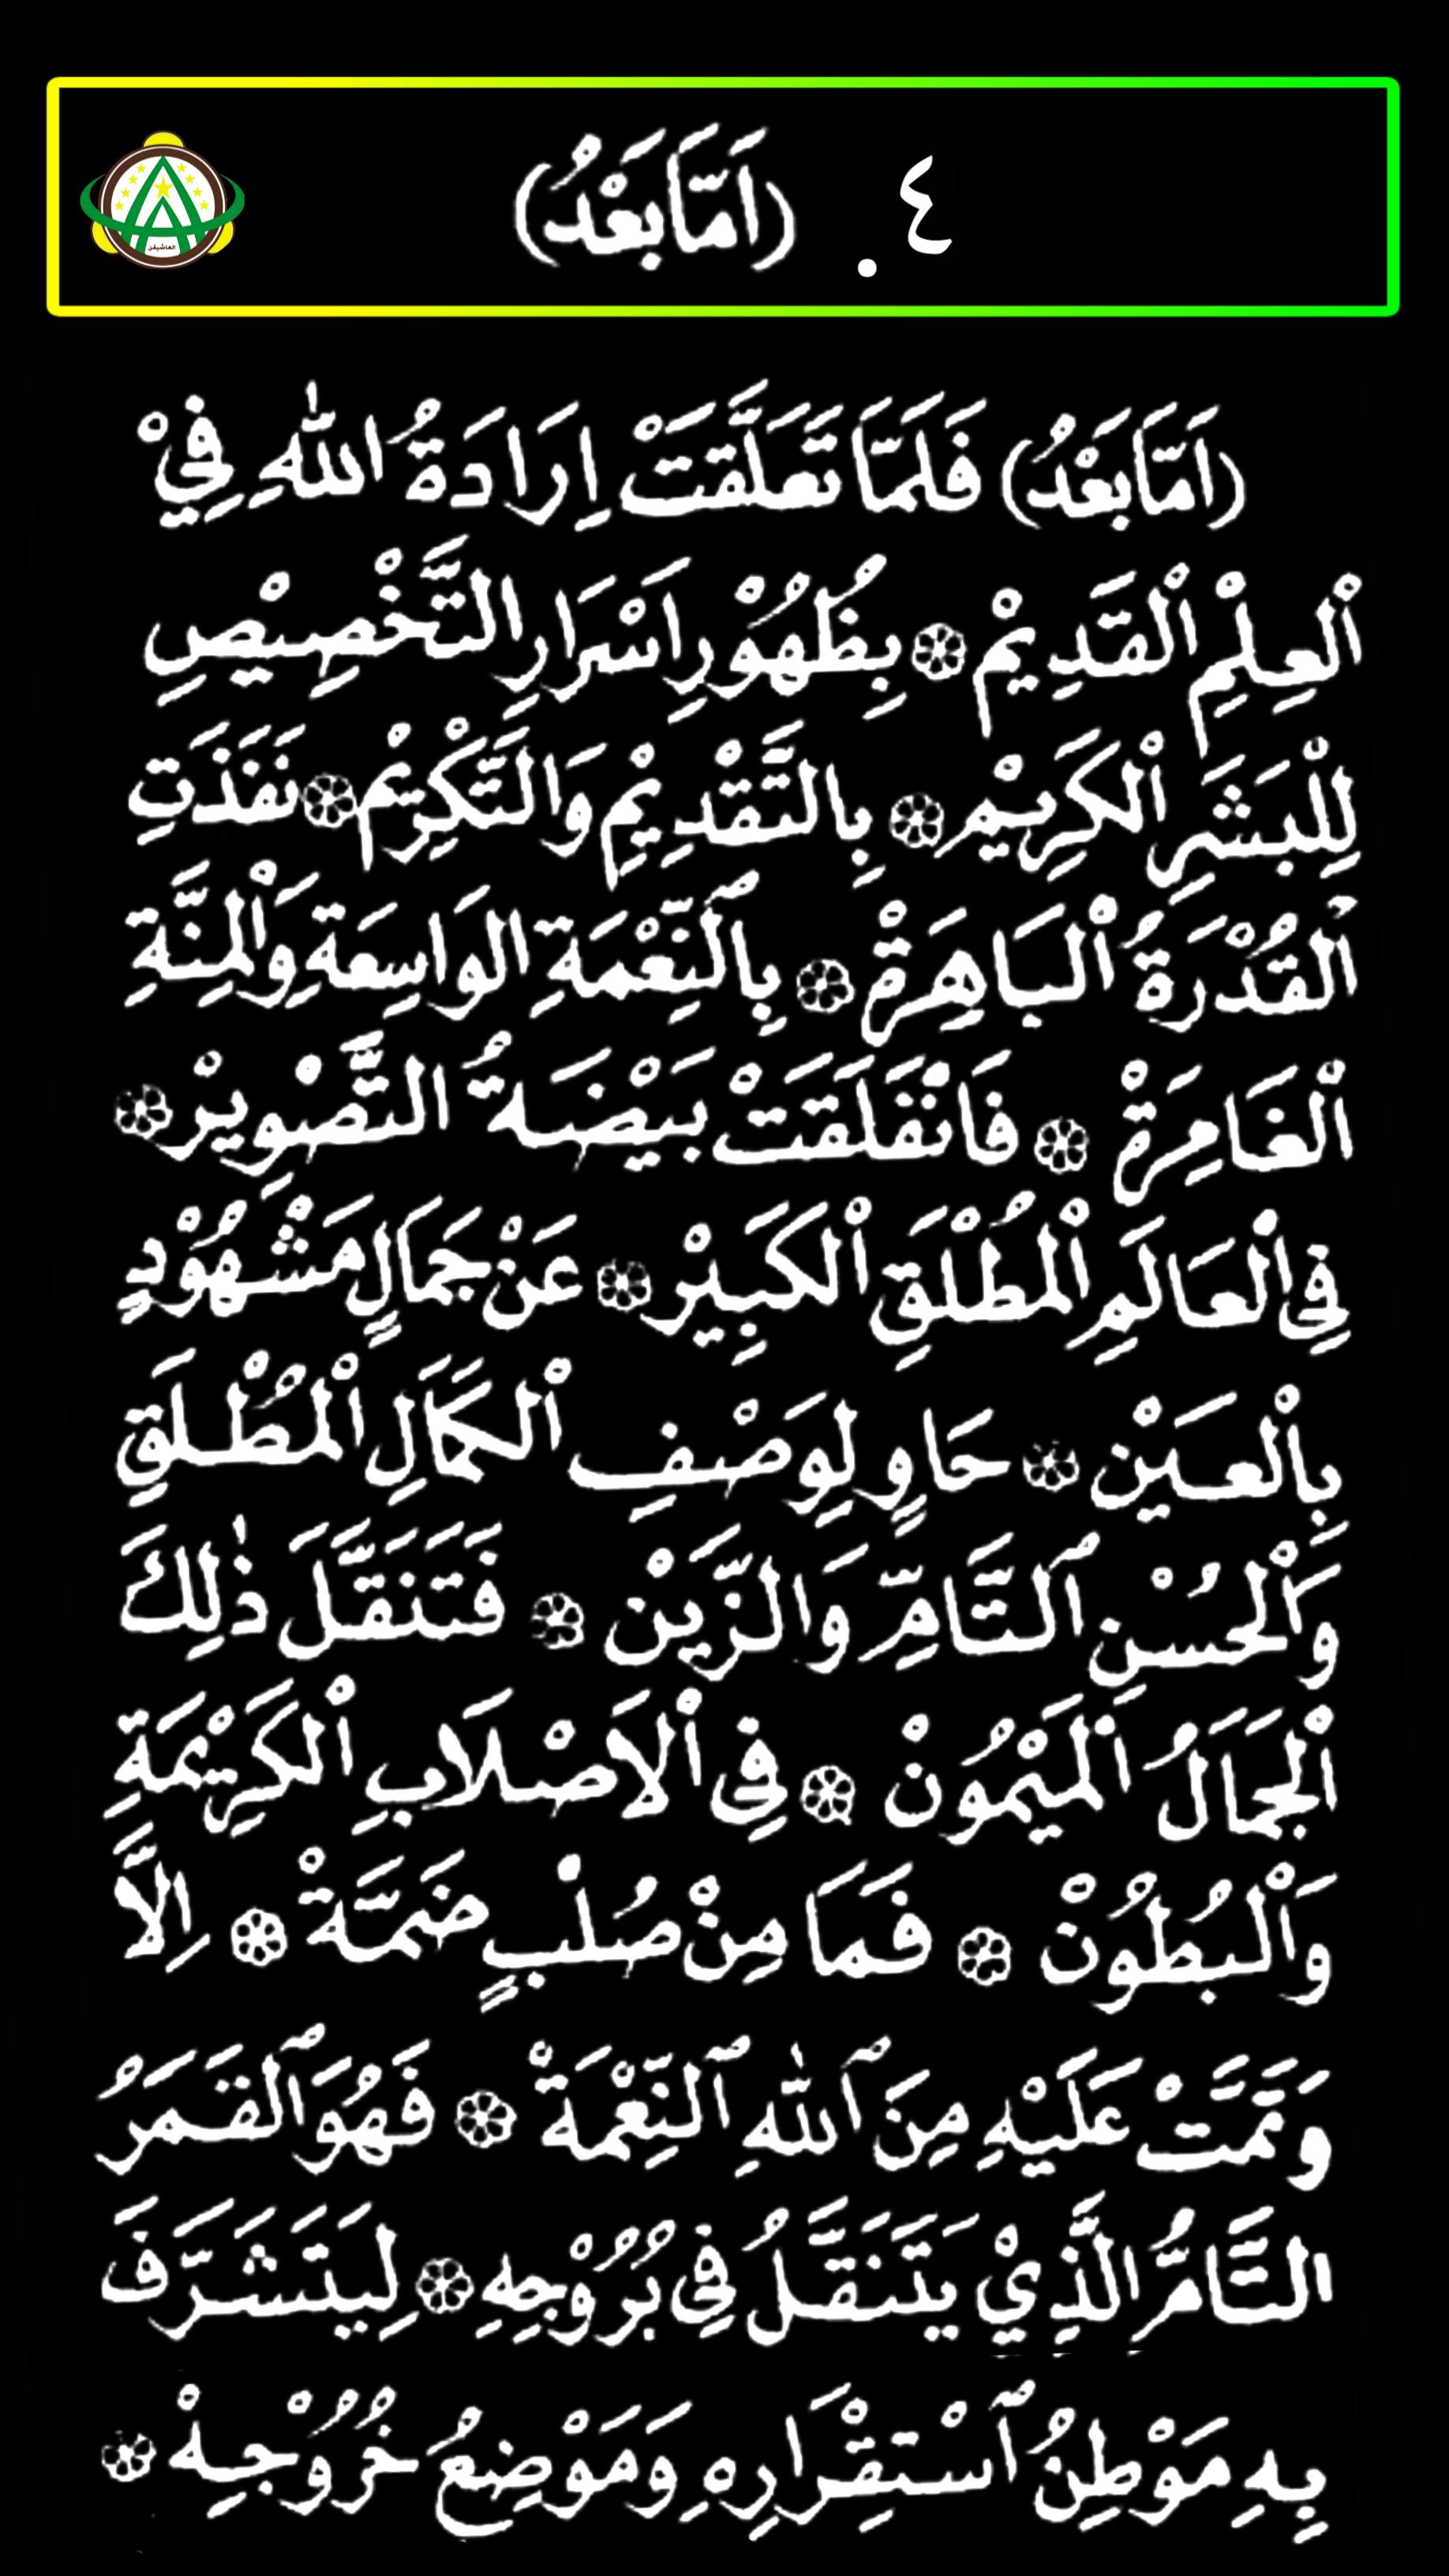 ٤. (اَمَّابَعْدُ)
العاشيقن
(اَمَّابَعْدُ) فَلَمَّا تَعَلَّقَتْ اِرَادَةُ اللهِ فِيْ
اْلعِلْمِ اْلقَدِيمْ ۞ بِظُهُوْرِ اَسْرَارِ التَّخْصِيْصِ
لِلْبَشَرِ اْلكَرِيْمِ ۞ بِالتَّقْدِيْمِ وَالتَّكْرِيْمْ ۞ نَفَذَتِ
اْلقُدْرَةُ اْلبَاهِرَةْ ۞ بِالنِّعْمَةِ الوَاسِعَةِ وَاْلمِنَّةِ
اْلغَامِرَةْ ۞ فَانْفَلَقَتْ بَيْضَةُ التَّصْوِيرْ ۞
فِى اْلعَالَمِ اْلمُطْلَقِ اْلكَبِيْرْ ۞ عَنْ جَمَالٍ مَشْهُوْدٍ
بِاْلعَيْنِ ۞ حَاوٍ لِوَصْفِ اْلكَمَالِ اْلمُطْلَقِ
وَاْلحُسْنِ ٱلتَّامِّ وَالزَّيْنِ ۞ فَتَنَقَّلَ ذٰلِكَ
اْلجَمَالُ اْلمَيْمُونْ ۞ فِى اْلاَصْلَابِ اْلكَرِيْمَةِ
وَاْلبُطُونْ ۞ فَمَا مِنْ صُلْبٍ ضَمَّهْ ۞ اِلاَّ
وَتَمَّتْ عَلَيْهِ مِنَ ٱللهِ ٱلنِّعْمَةْ ۞ فَهُوَ ٱلْقَمَرُ
التَّامُّ الَّذِيْ يَتَنَقَّلُ فِى بُرُوْجِهِ ۞ لِيَتَشَرَّفَ
بِهِ مَوْطِنُ ٱسْتِقْرَارِهِ وَمَوْضِعُ خُرُوْجِهْ ۞